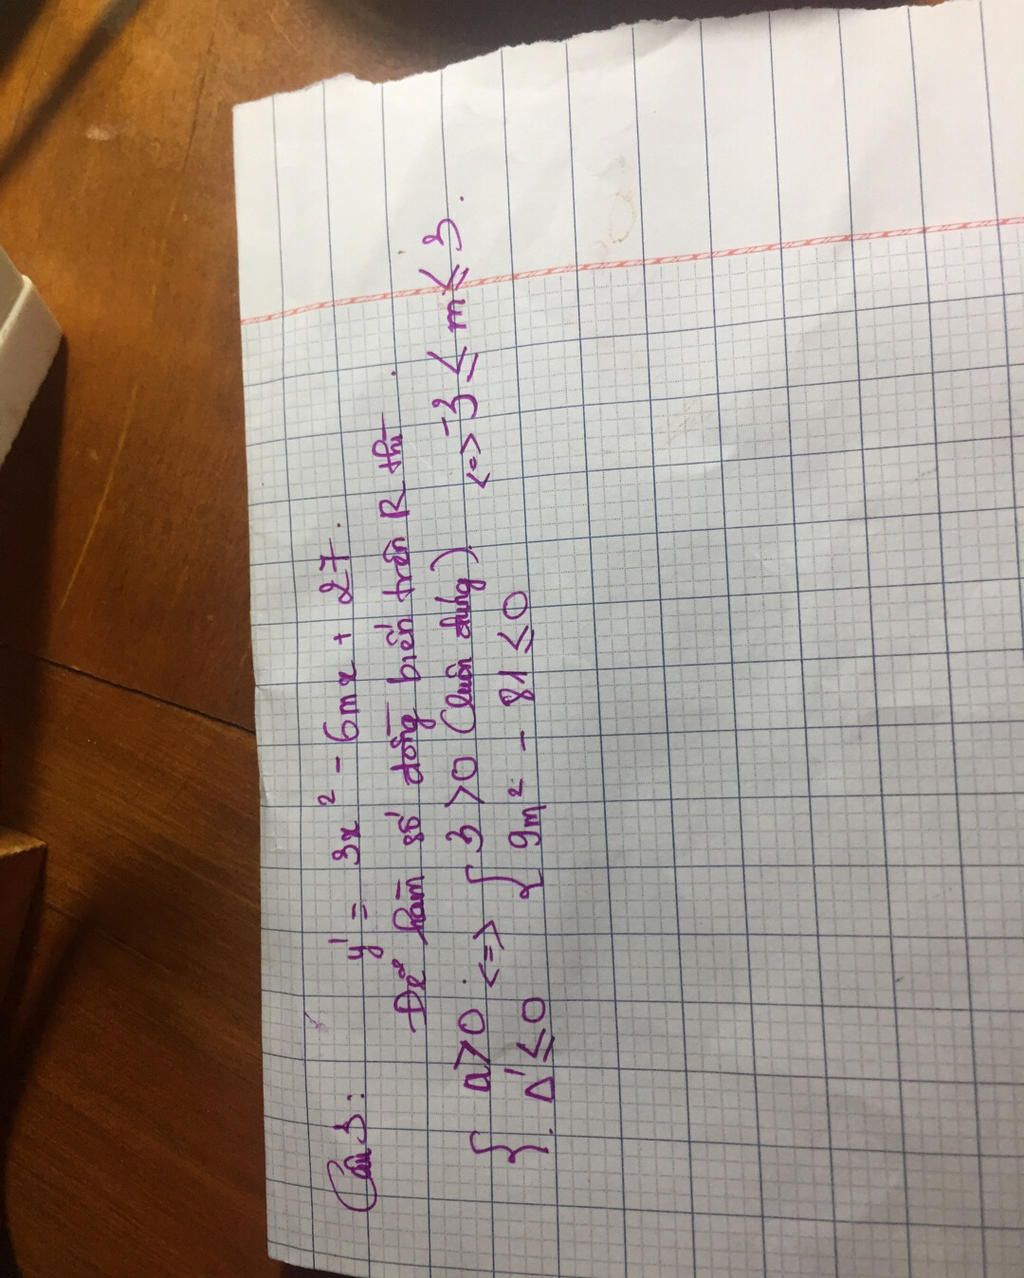 Câu 3:
y' = 3x² - 6mx + 27.
Để hàm số đồng biến trên R thì
{ a > 0 <=> { 3 > 0 (luôn đúng) <=> -3 ≤ m ≤ 3.
{ Δ' ≤ 0 { 9m² - 81 ≤ 0